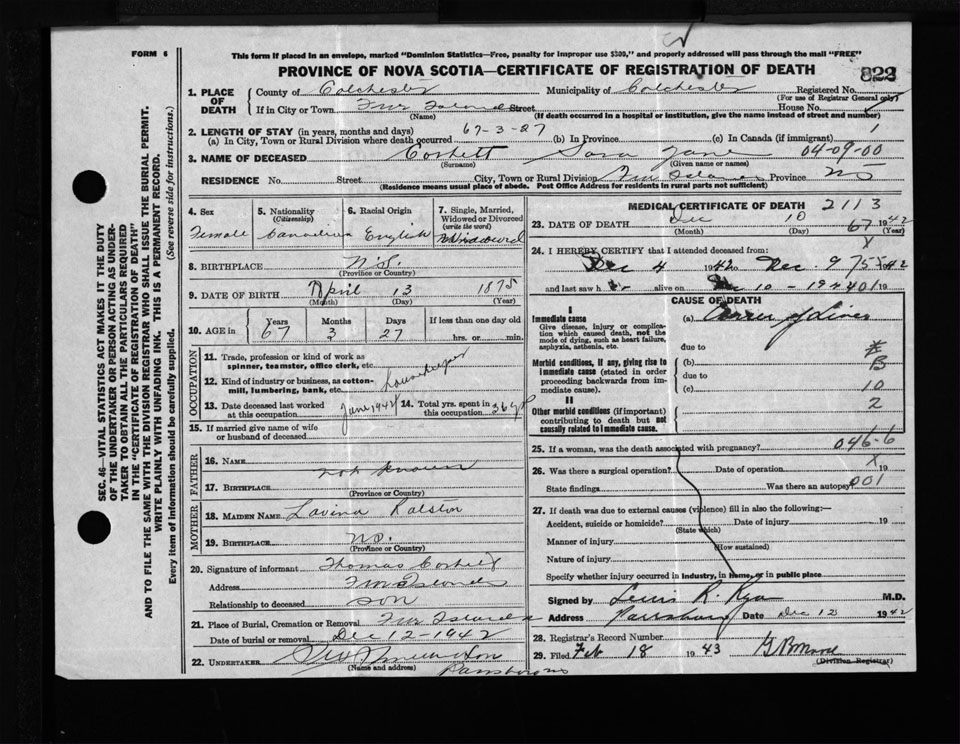 FORM 6
This form if placed in an envelope, marked "Dominion Statistics—Free, penalty for improper use $300," and properly addressed will pass through the mail "FREE"
PROVINCE OF NOVA SCOTIA—CERTIFICATE OF REGISTRATION OF DEATH
822
SEC. 46—VITAL STATISTICS ACT MAKES IT THE DUTY
OF THE UNDERTAKER OR PERSON ACTING AS UNDER-
TAKER TO OBTAIN ALL THE PARTICULARS REQUIRED
IN THE "CERTIFICATE OF REGISTRATION OF DEATH"
AND TO FILE THE SAME WITH THE DIVISION REGISTRAR WHO SHALL ISSUE THE BURIAL PERMIT.
WRITE PLAINLY WITH UNFADING INK. THIS IS A PERMANENT RECORD.
Every item of Information should be carefully supplied. (See reverse side for instructions.)
1. PLACE OF DEATH
County of Colchester Municipality of Colchester Registered No.
(For use of Registrar General only)
If in City or Town Five Islands Street House No.
(Name) (If death occurred in a hospital or institution, give the name instead of street and number)
2. LENGTH OF STAY (in years, months and days)
(a) In City, Town or Rural Division where death occurred 67-3-27 (b) In Province (c) In Canada (if immigrant) 1
3. NAME OF DECEASED Corbett Sara Jane 04-09-00
(Surname) (Given name or names)
RESIDENCE No. Street City, Town or Rural Division Five Islands Province NS
(Residence means usual place of abode. Post Office Address for residents in rural parts not sufficient)
4. Sex
Female
5. Nationality
(Citizenship)
Canadian
6. Racial Origin
English
7. Single, Married,
Widowed or Divorced
(write the word)
Widowed
8. BIRTHPLACE N.S.
(Province or Country)
9. DATE OF BIRTH April 13 1875
(Month) (Day) (Year)
10. AGE in
Years Months Days If less than one day old
67 3 27 hrs. or min.
OCCUPATION
11. Trade, profession or kind of work as
spinner, teamster, office clerk, etc.
12. Kind of industry or business, as cotton-
mill, lumbering, bank, etc. housekeeper
13. Date deceased last worked
at this occupation June 1942
14. Total yrs. spent in
this occupation 26 yr
15. If married give name of wife
or husband of deceased
FATHER
16. Name not known
17. Birthplace
(Province or Country)
MOTHER
18. Maiden Name Lavina Ralston
19. Birthplace NS.
(Province or Country)
20. Signature of informant Thomas Corbett
Address Five Islands
Relationship to deceased son
21. Place of Burial, Cremation or Removal Five Islands
Date of burial or removal Dec 12-1942
22. UNDERTAKER
(Name and address)
Parrsboro NS
MEDICAL CERTIFICATE OF DEATH 2113
23. DATE OF DEATH Dec 10 67 1942
(Month) (Day) (Year)
24. I HEREBY CERTIFY that I attended deceased from: X
Dec 4 1942 to Dec. 9 1942
and last saw h alive on Dec 10 - 1942
CAUSE OF DEATH
I
Immediate cause
Give disease, injury or complication
which caused death, not the
mode of dying, such as heart failure,
asphyxia, asthenia, etc.
(a) Cancer of Liver
due to
Morbid conditions, if any, giving rise to
immediate cause (stated in order
proceeding backwards from immediate
cause).
(b) B
due to
(c) 10
II
Other morbid conditions (if important)
contributing to death but not
causally related to immediate cause.
2
25. If a woman, was the death associated with pregnancy? 046-6
26. Was there a surgical operation? Date of operation X 19
State findings Was there an autopsy? 001
27. If death was due to external causes (violence) fill in also the following:—
Accident, suicide or homicide? Date of injury 19
(State which)
Manner of injury
(How sustained)
Nature of injury
Specify whether injury occurred in industry, in home, or in public place
Signed by Lewis R. Ryan M.D.
Address Parrsboro Date Dec 12 1942
28. Registrar's Record Number
29. Filed Feb 18 1943
(Division Registrar)